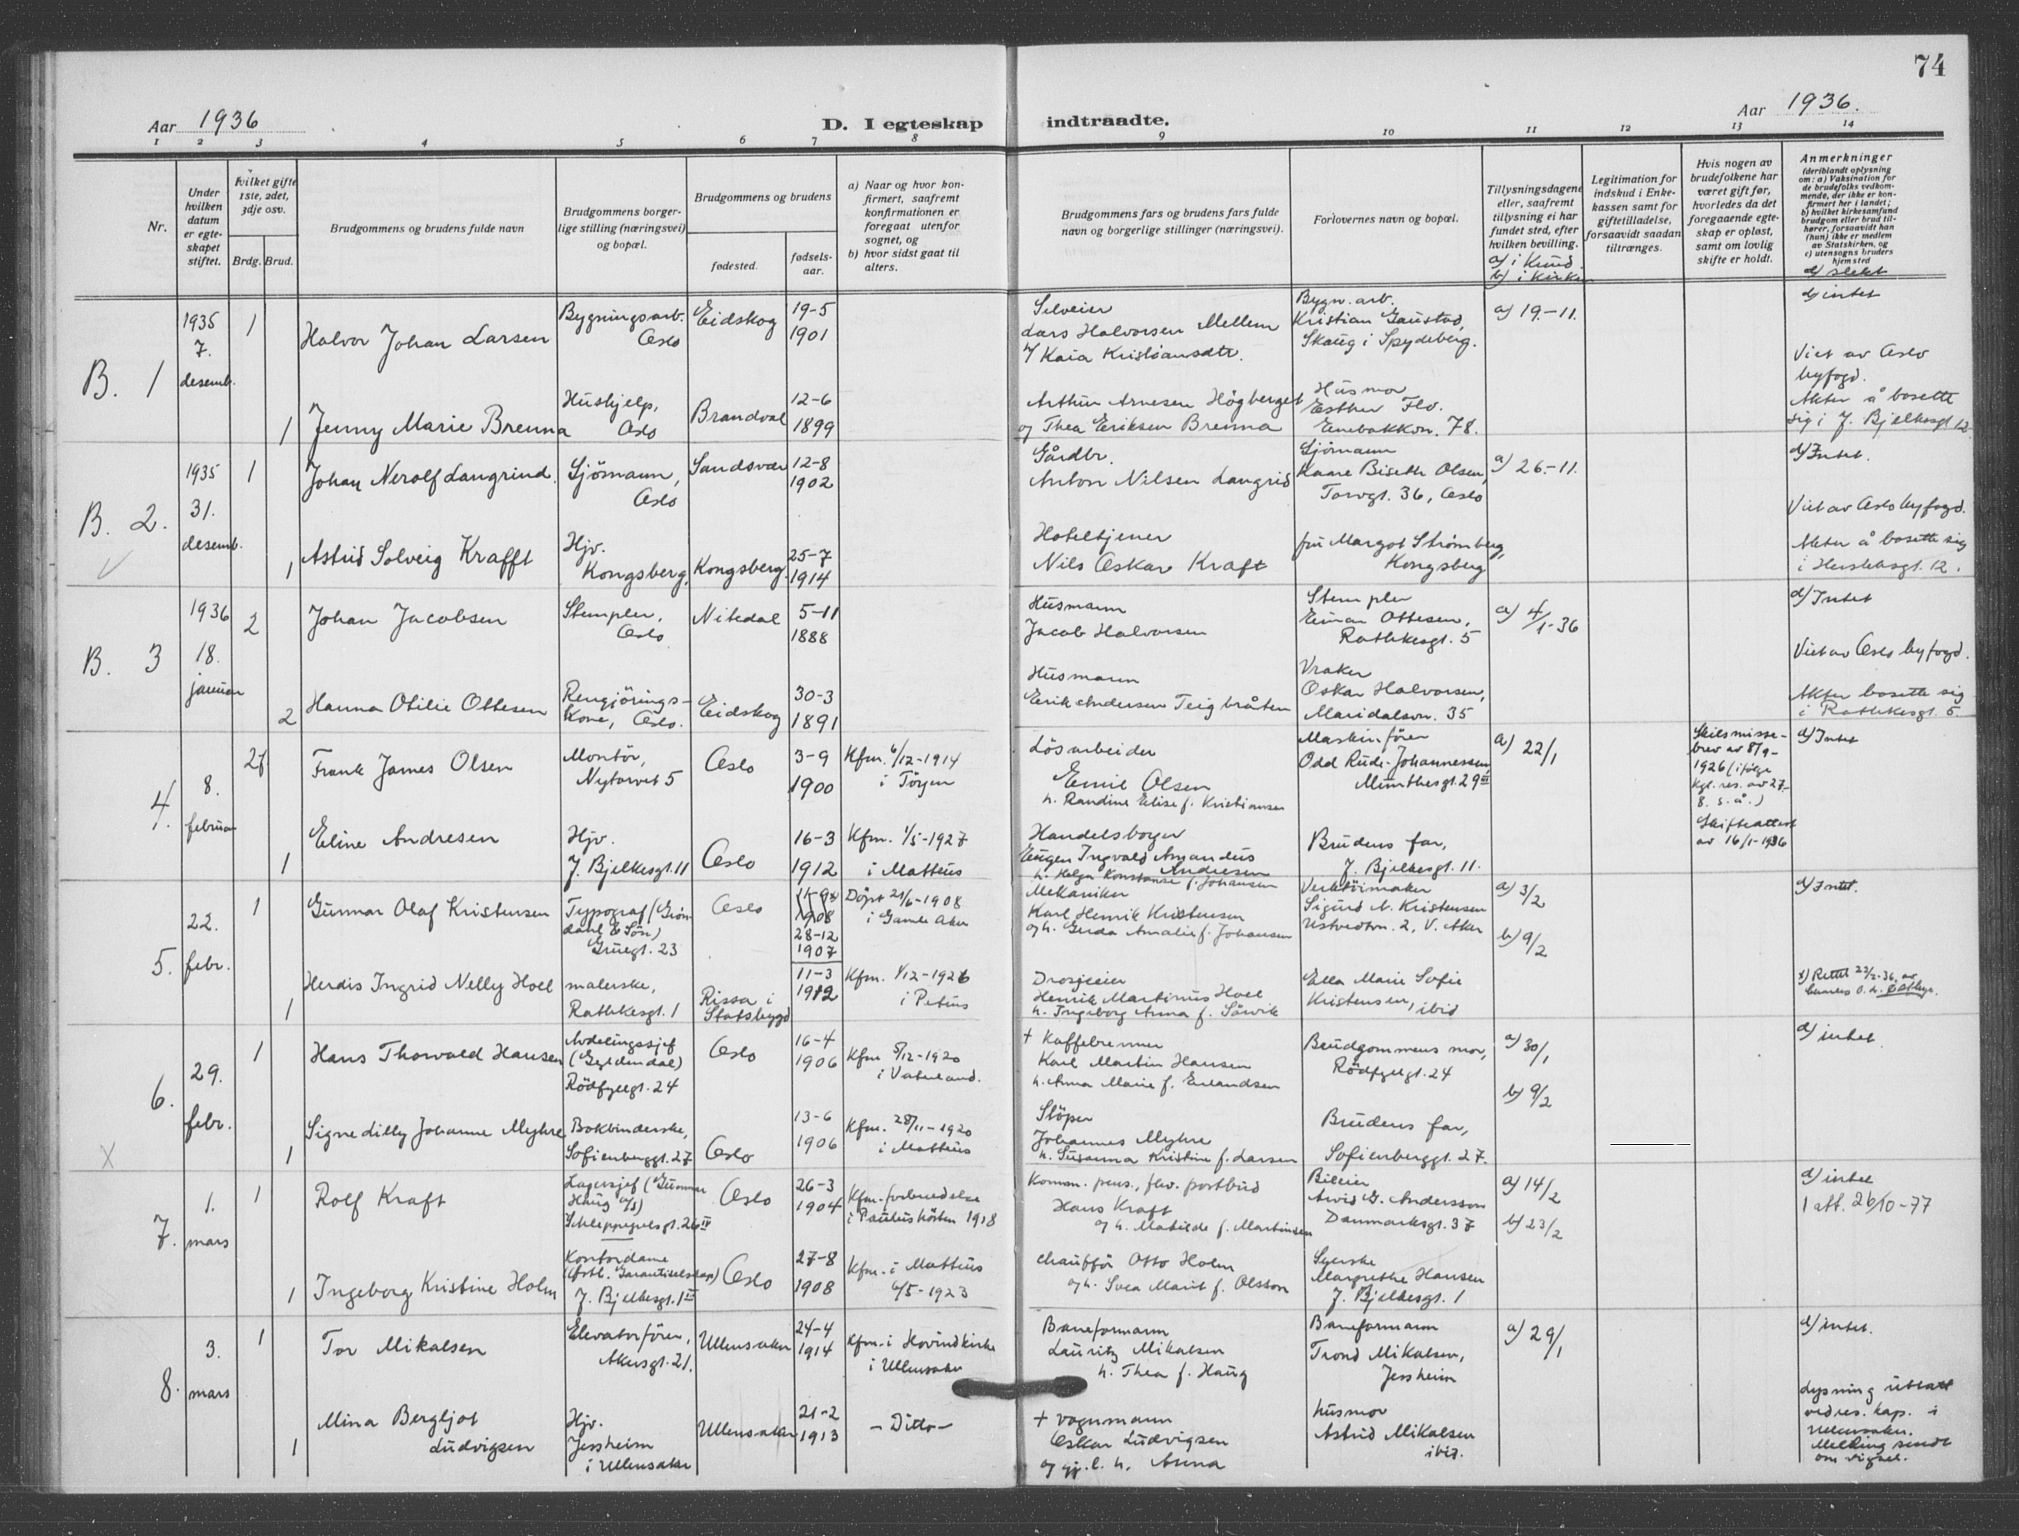 74
Aar 1936
D. I egteskap indtraadte.
Aar 1936.
1 2 3 4 5 6 7 8 9 10 11 12 13 14
Nr.
Under hvilken datum er egteskapet stiftet.
Hvilket gifte 1ste, 2det, 3dje osv.
Brdg. Brud.
Brudgommens og brudens fulde navn
Brudgommens borgerlige stilling (næringsvei) og bopæl.
Brudgommens og brudens
fødested.
fødselsaar.
a) Naar og hvor konfirmert, saafremt konfirmationen er foregaat utenfor sognet, og
b) hvor sidst gaat til alters.
Brudgommens fars og brudens fars fulde navn og borgerlige stillinger (næringsvei).
Forlovernes navn og bopæl.
Tillysningsdagene eller, saafremt tillysning ei har fundet sted, efter hvilken bevilling.
b) i Kirke
Legitimation for indskud i Enkekassen samt for giftetilladelse, forsaavidt saadan tiltrænges.
Hvis nogen av brudefolkene har været gift før, hvorledes da det foregaaende egteskap er opløst, samt om lovlig skifte er holdt.
Anmerkninger
(deriblandt oplysning om: a) Vaksination for de brudefolks vedkommende, der ikke er konfirmert her i landet; b) hvilket kirkesamfund brudgom eller brud tilhører, forsaavidt han (hun) ikke er medlem av Statskirken, og c) utensogns bruders hjemsted
d) slekt
B. 1
1935
7.
desemb.
1
Halvor Johan Larsen
Bygningsarb.
Oslo
Eidskog
19-5
1901
Selveier
Lars Halvorsen Mellem
Kaia Kristiansdtr.
Bygn. arb.
Kristian Gaustad,
Skaug i Spydeberg.
a) 19.-11.
d) intet
Viet av Oslo
byfogd.
1
Jenny Marie Brenna
Hushjelp,
Oslo
Brandval
12-6
1899
Arthur Arnesen Högberget
og Thea Eriksen Brenna
Husmor
Esther Flo.
Enebakkvn. 78.
Akter å bosette
sig i J. Bjelkesgt 12
B. 2.
1935
31.
desemb.
1
Johan Nerolf Langrind.
Sjömann,
Oslo
Sandsvær
12-8
1902
Gårdbr.
Anton Nilsen Langrid
Sjömann
Kaare Biseth Olsen,
Torvgt. 36, Oslo
a) 26.-11.
d) Intet.
Viet av Oslo byfogd.
1
Astrid Solveig Krafft
Hjv.
Kongsberg,
Kongsberg.
25-7
1914
Hoteltjener
Nils Oskar Kraft
fru Margot Strømberg,
Kongsberg
Akter å bosette sig
i Herslebsgt. 12.
B. 3
1936
18.
januar
2
Johan Jacobsen
Stempler,
Oslo
Nitedal
5-11
1888
Husmann
Jacob Halvorsen
Stempler
Einar Ottesen,
Rathkesgt. 5
a) 4/1-36
d) Intet
Viet av Oslo byfogd.
2
Hanna Otilie Ottesen
Rengjörings-
kone, Oslo.
Eidskog
30-3
1891
Husmann
Erik Andersen Teigbråten
Vraker
Oskar Halvorsen,
Maridalsvn. 35
Akter bosette sig
i Rathkesgt. 5.
4.
8.
februar
2
Frank James Olsen
Montör,
Nytorvet 5
Oslo
3-9
1900
Kfm. 6/12-1914
i Töyen
Lösarbeider
Emil Olsen
h. Randine Elise f. Kristiansen
Maskinfören
Odd Rude-Johannessen,
Munthesgt. 29 III
a) 22/1
Skilsmisse-
brev av 8/9-
1926 (ifölge
kgl. res. av 27-
8. s. å.)
Skifteattest
av 16/1-1936
d) Intet
1
Eline Andresen
Hjv.
J. Bjelkesgt. 11
Oslo
16-3
1912
Kfm. 1/5-1927
i Matteus
Handelsborger
Eugen Ingvald Amandus
Andresen
h. Helga Konstanse f. Johansen
Brudens far,
J. Bjelkesgt. 11.
5.
22.
febr.
1
Gunnar Olaf Kristensen
Typograf (Grön-
dahl & Sön)
Gruegt. 23
Oslo
1908
28-12
1907
Döpt 21/6-1908
i Gamle Aker
Mekaniker
Karl Henrik Kristensen
og h. Gerda Amalie f. Johansen
Verktöimaker
Sigurd N. Kristensen
Ustvedtvn. 2, V. Aker
a) 3/2
b) 9/2
d) Intet.
1
Herdis Ingrid Nelly Hoel
malerske,
Rathkesgt. 1
Rissa i
Statsbygd
11-3
1912
Kfm. 1/12-1926
i Petrus
Drosjeeier
Henrik Martinus Hoel
h. Ingeborg Anna f. Sörvik
Ella Marie Sofie
Kristensen, ibid
x) Rettet 22/2-36. av
6.
29.
febr.
1
Hans Thorvald Hansen
Avdelingssjef
(Gyldendal)
Rödfyllgt. 24
Oslo
16-4
1906
Kfm 5/12-1920
i Vaterland.
+ Kaffebrenner
Karl Martin Hansen
h. Anna Marie f. Erlandsen
Brudgommens mor,
Rödfyllgt. 24
a) 30/1
b) 9/2
d) intet.
1
Signe Lilly Johanne Myhre
Bokbinderske,
Sofienberggt. 27
Oslo
13-6
1906
Kfm. 28/11-1920
i Matteus
Stöper
Johannes Myhre
h. Susanna Kristine f. Larsen
Brudens far,
Sofienberggt. 27.
7.
1.
mars
1
Rolf Kraft
Lagersjef (Gunnar
Haug A/S)
Schleppegrelsgt. 26 IV
Oslo
26-3
1904
Kfm. forberedelse
i Paulus hösten 1918
Komm. pens., fhv. postbud
Hans Kraft
og h. Matilde f. Martinsen
Bileier
Arvid G. Andersson
Danmarksgt. 37
a) 14/2
b) 23/2
d) intet
1 att. 26/10-77
1
Ingeborg Kristine Holm
Kontordame
(Östl. Garantiselskap)
J. Bjelkesgt. 1 II
Oslo
27-8
1908
Kfm. i Matteus
6/5-1923
Chaufför Otto Holm
og h. Svea Marit f. Olsson
Syerske
Margrethe Hansen
J. Bjelkesgt. 1
8.
3.
mars
1
Tor Mikalsen
Elevatorfören,
Akersgt. 21.
Ullensaker
24-4
1914
Kfm. i Hovindkirke
i Ullensaker
Baneformann
Lauritz Mikalsen
h. Thea f. Haug
Baneformann
Trond Mikalsen,
Jessheim
a) 29/1
d) intet.
1
Mina Bergljot
Ludvigsen
Hjv.
Jessheim
i Ullensaker
Ullensaker
21-2
1913
- Ditto -
+ vognmann
Oskar Ludvigsen
og gj. l. h. Anna
husmor
Astrid Mikalsen
ibid.
Lysning uttatt
ved res. kap. i
Ullensaker.
Melding sendt
om vigsel.